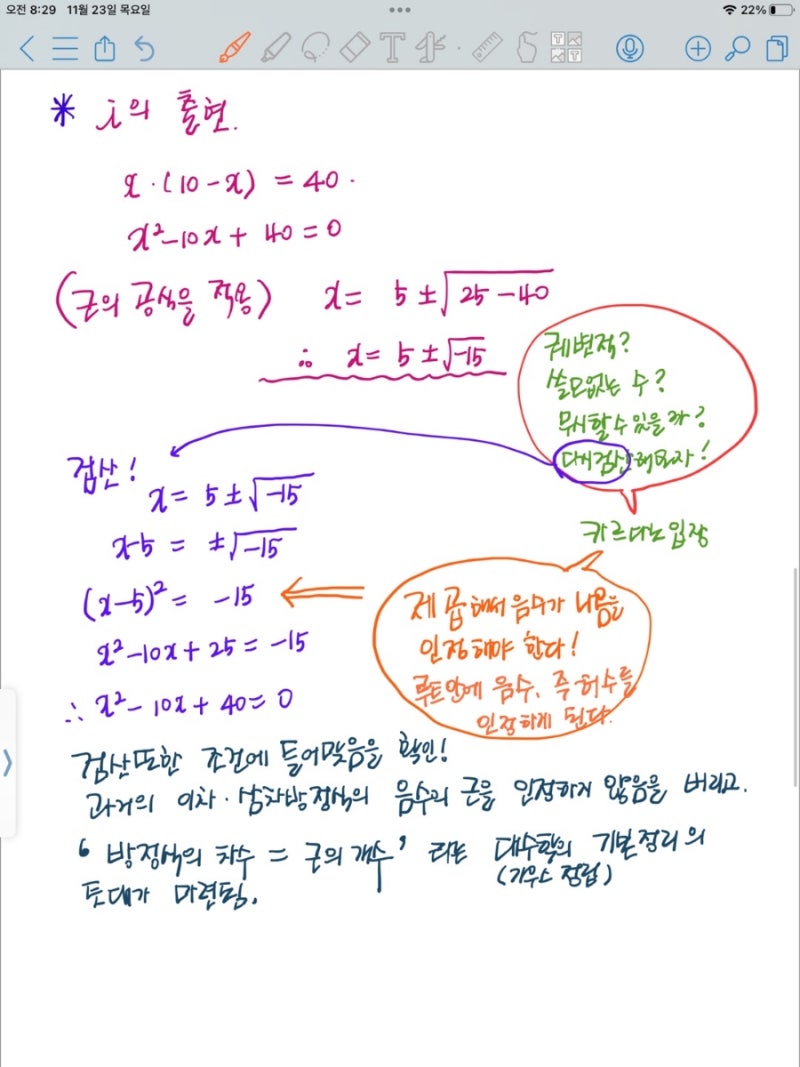 오전 8:29 11월 23일 목요일
22%
* i의 출현.
x·(10-x) = 40.
x²-10x+40=0
(근의 공식을 적용) x= 5±√25-40
∴ x=5±√-15
궤변적?
쓸모없는 수?
무시할 수 있을까?
다시검산해보자!
카르다노 입장
검산!
x= 5±√-15
x-5 = ±√-15
(x-5)² = -15
x²-10x+25=-15
∴ x²-10x+40=0
제곱해서 음수가 나옴을
인정해야 한다!
루트안에 음수, 즉 허수를
인정하게 된다.
검산또한 조건에 들어맞음을 확인!
과거의 이차·삼차방정식의 음수의 근을 인정하지 않음을 버리고.
‘방정식의 차수 = 근의 개수’ 라는 대수학의 기본정리의
(가우스 정립)
토대가 마련됨.